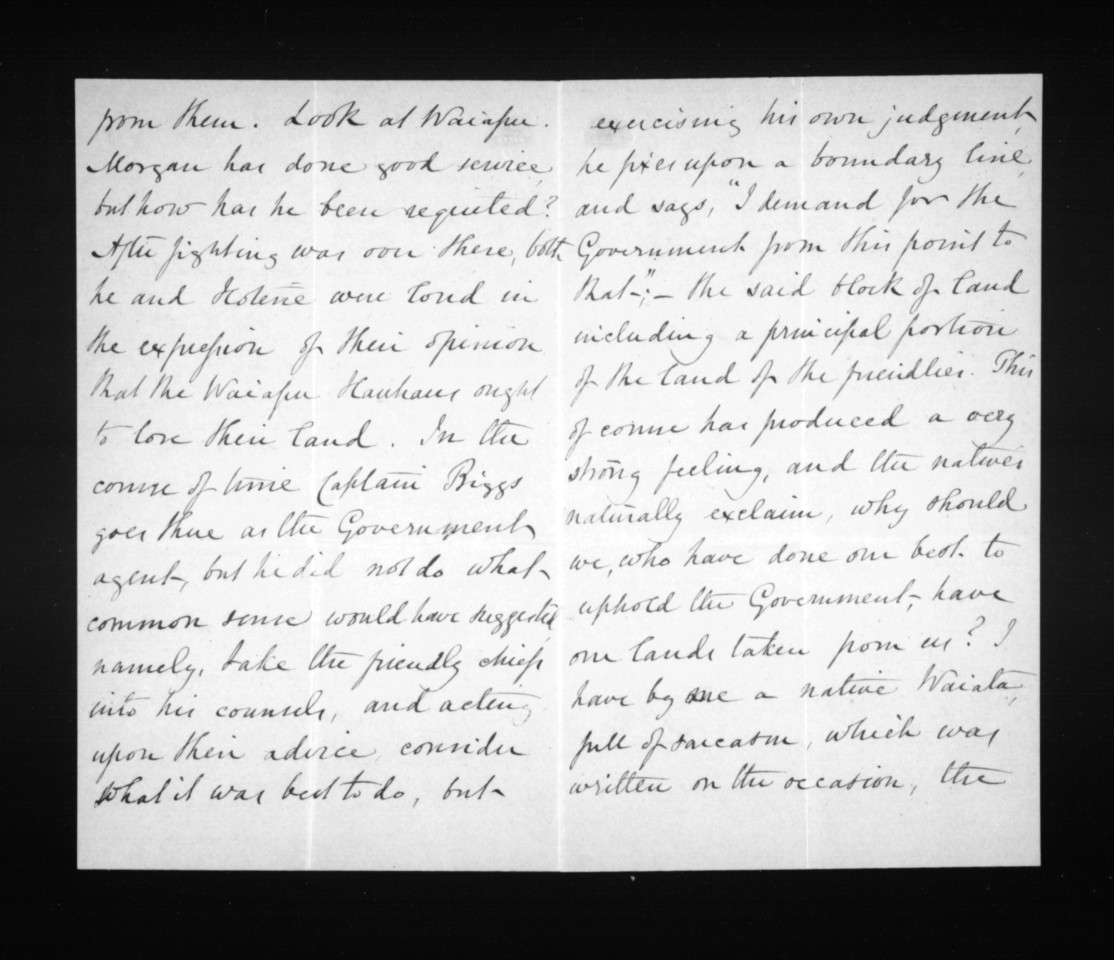 from them. Look at Waiapu.
Morgan has done good service,
but how has he been requited?
After fighting was over there, both
he and Hotene were loud in
the expression of their opinion
that the Waiapu Hauhaus ought
to lose their land. In the
course of time Captain Biggs
goes there as the Government
agent, but he did not do what
common sense would have suggested,
namely, take the friendly chiefs
into his counsels, and acting
upon their advice, consider
what it was best to do, but
exercising his own judgment,
he fixes upon a boundary line,
and says, "I demand for the
Government from this point to
that";— the said block of land
including a principal portion
of the land of the friendlies. This
of course has produced a very
strong feeling, and the natives
naturally exclaim, why should
we, who have done our best to
uphold the Government, have
our lands taken from us? I
have by me a native Waiata,
full of sarcasm, which was
written on the occasion, the